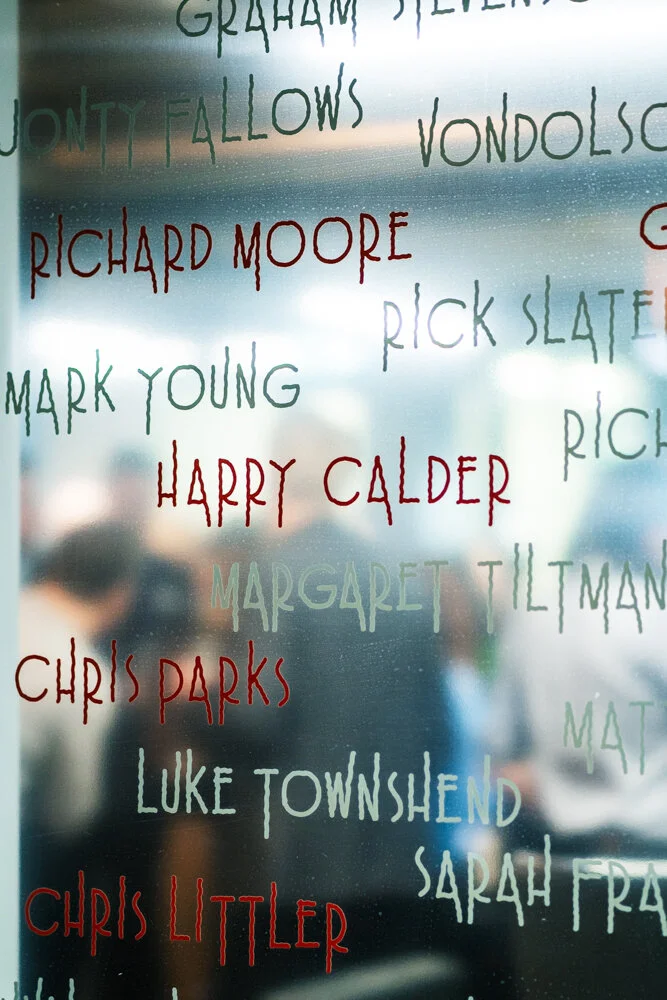 GRAHAM STEVENSO
JONTY FALLOWS
VONDOLSO
RICHARD MOORE
G
RICK SLATE
MARK YOUNG
RICH
HARRY CALDER
MARGARET TILTMAN
CHRIS PARKS
MAT
LUKE TOWNSHEND
SARAH FRA
CHRIS LITTLER